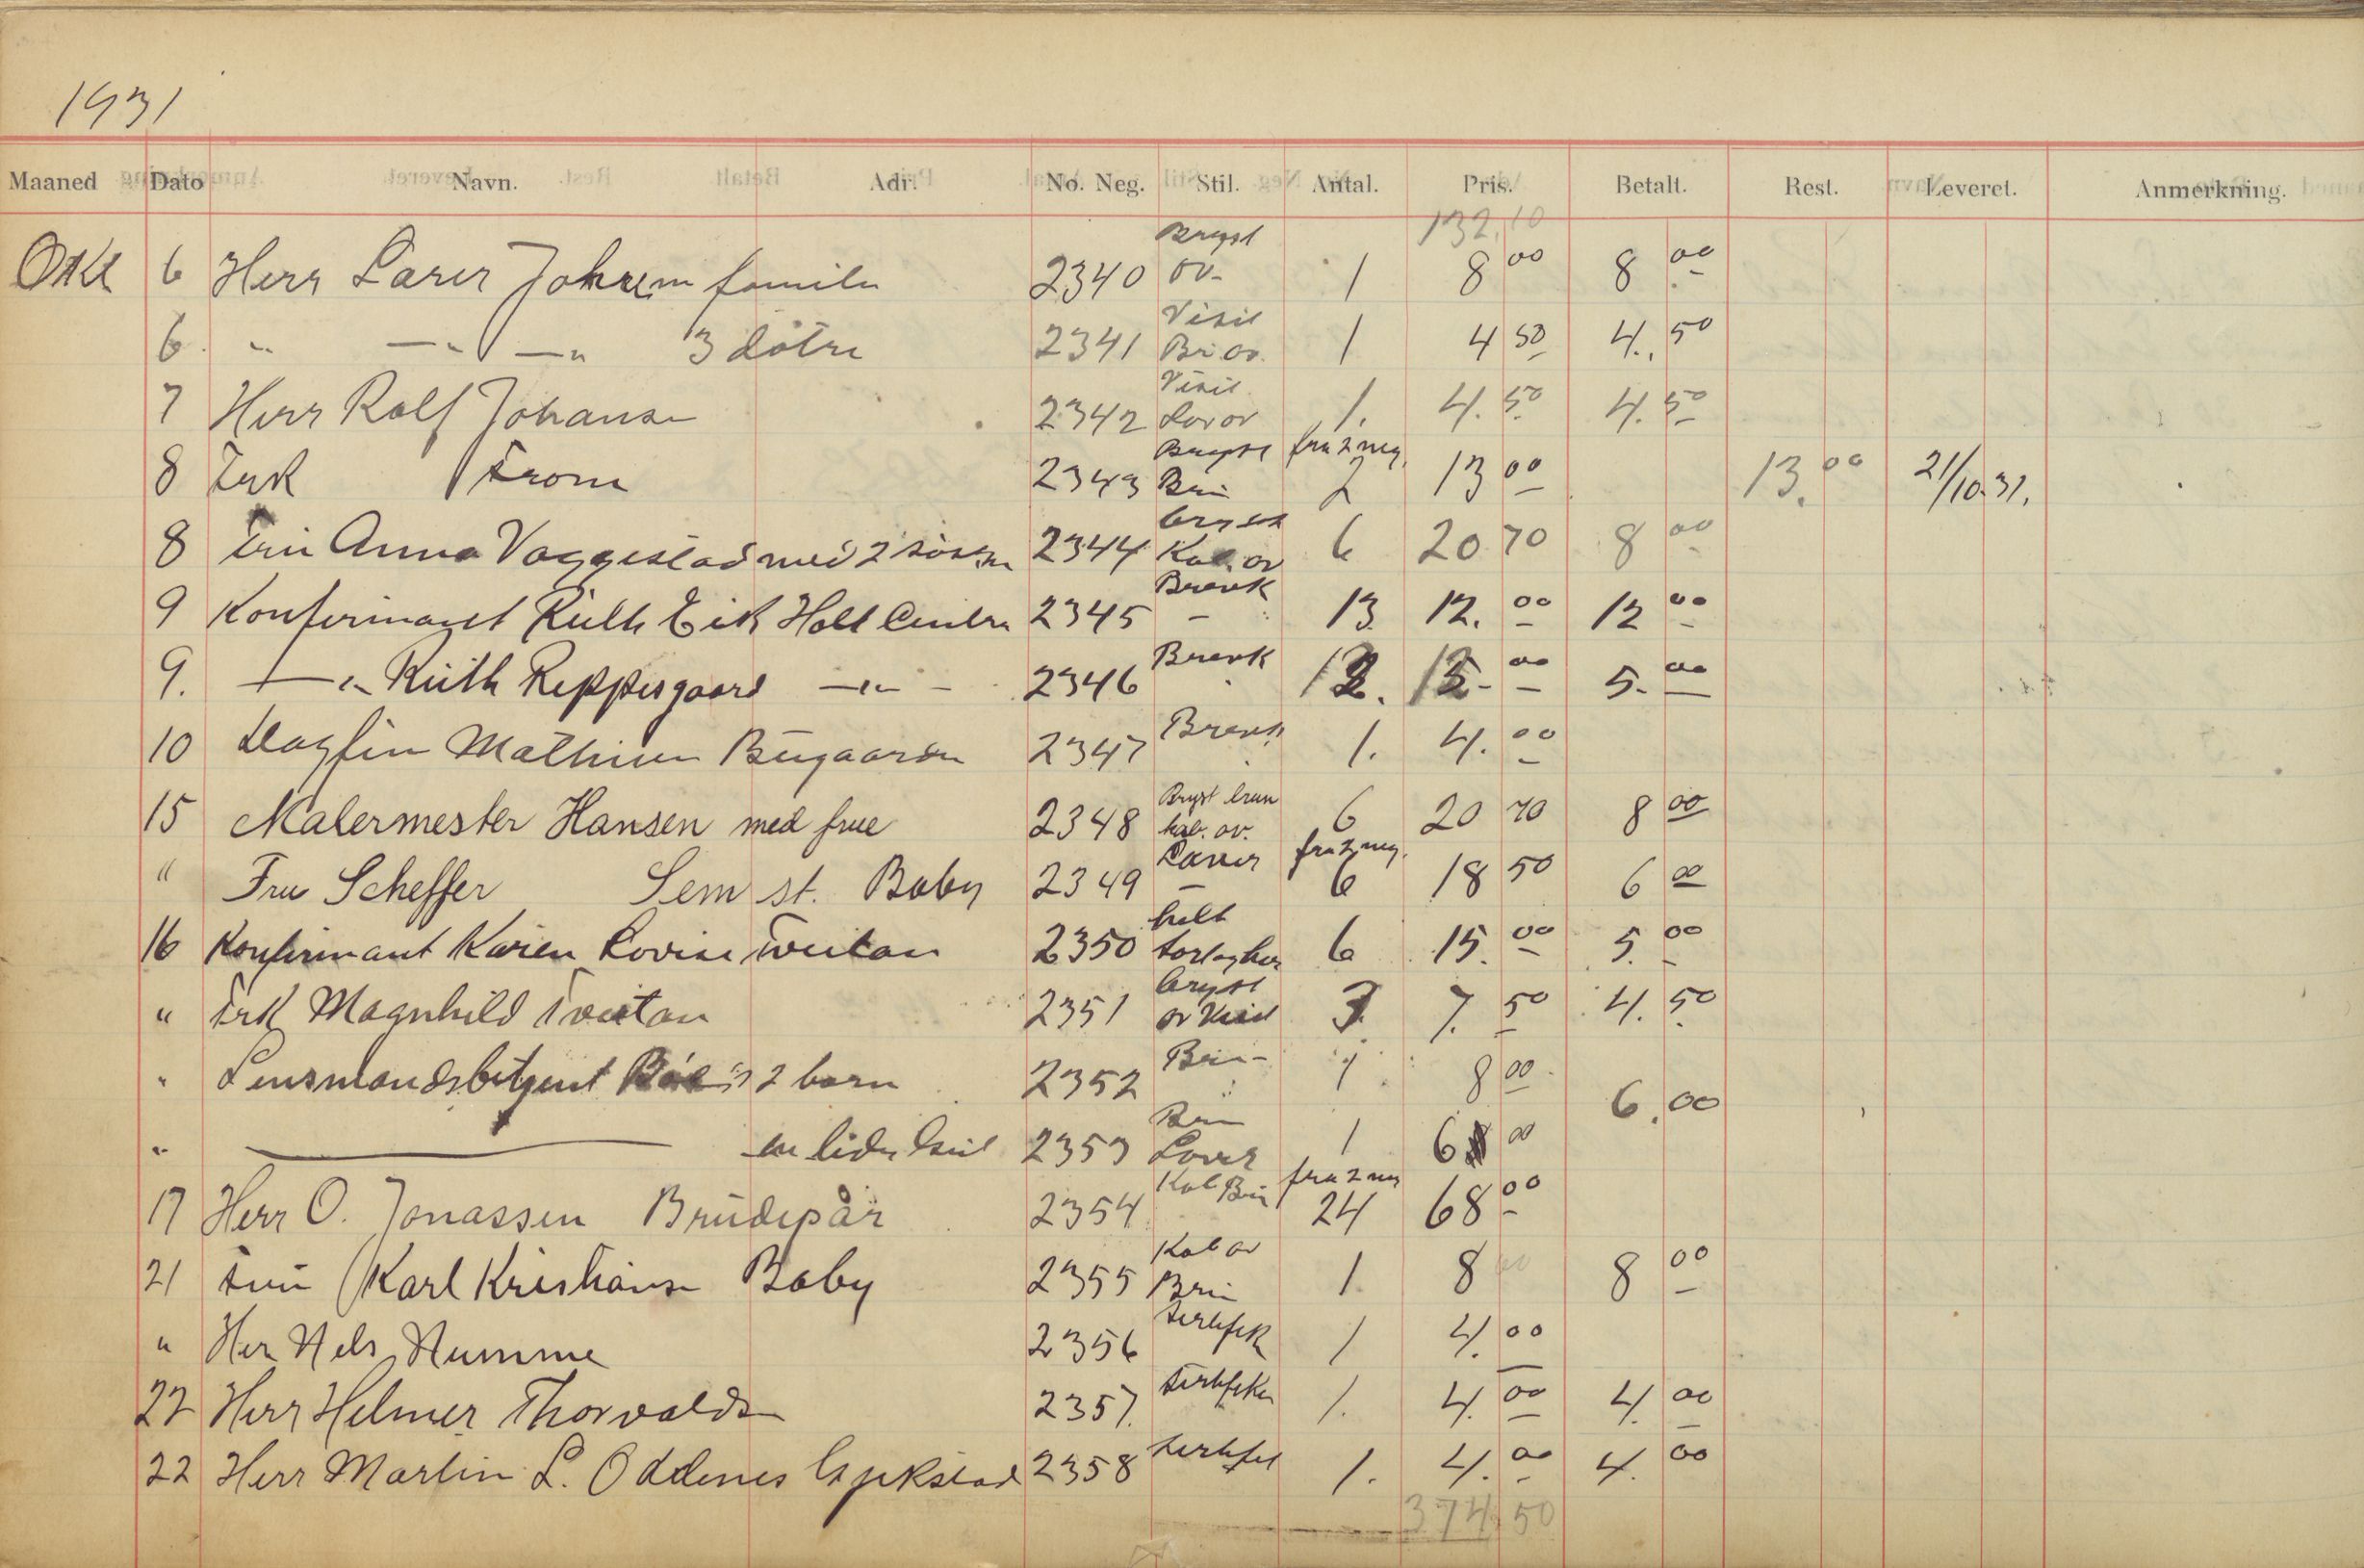 1931
Maaned Dato Navn. Adr. No. Neg. Stil. Antal. Pris. Betalt. Rest. Leveret. Anmerkning.
132,10
Okt 6 Herr Larer familie 2340 Bryst ov- 1 8 00 8 00
6 " —"— —" 3 døtre 2341 Visit Br ov. 1 4 50 4. 50
7 Herr Rolf Johansen 2342 Visit ov 1. 4. 50 4. 50
8 Frk From 2343 Bryst Brü fra 2 neg. 2 13 00 13. 00 21/10.31.
8 Frü Anna Vaggestad med 2 2344 bryst Kab. ov 6 20 70 8 00
9 Konfirmant Rüth Eik Holt 2345 Brevk - 13 12. 00 12 00
9. —"— Rüth Reppesgaard —"— - 2346 Brevk 12. 15- 00 5. 00
10 Dagfin Mathisen Bügaarden 2347 Brevk 1. 4. 00
15 Malermester Hansen med frue 2348 Bryst brun kab. ov. 6 20 70 8 00
" Fru Scheffer Sem st. Baby 2349 – fra 2 neg. 6 18 50 6 00
16 Konfirmant Karen Lovise Tveitan 2350 helt 6 15. 00 5. 00
" Frk Magnhild Tveitan 2351 bryst ov Visit 3 7. 50 4. 50
" Lensmandsbetjent 2 barn 2352 Brü- 1 8 00 6.00
" ——— en liden 2353 Brü 1 6 00
17 Herr O. Jonassen Brüdepar 2354 Kab Brü fra 2 neg 24 68 00
21 Frü Karl Kristiansen Baby 2355 Kab ov Brü 1 8 00 8 00
" Her Nels Humme 2356 sertifik 1 4. 00
22 Herr Helmer Thorvaldsen 2357. sertifikat 1. 4. 00 4. 00
22 Herr Martin L. Oddenes 2358 sertifet 1. 4. 00 4. 00
374 50